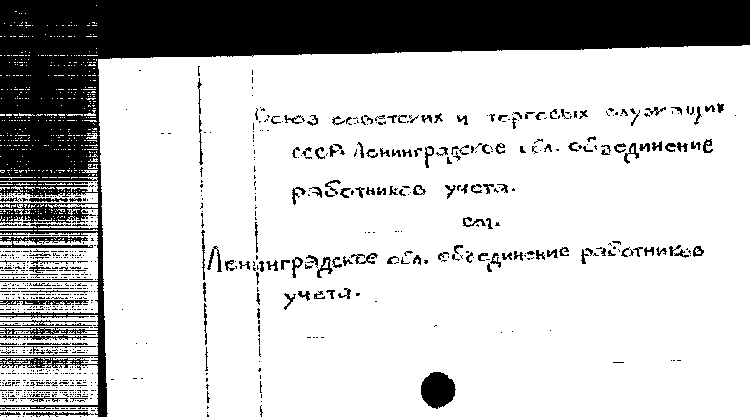 Союз советских и торговых служащих
СССР. Ленинградское обл. объединение
работников учета.
см.
Ленинградское обл. объединение работников
учета.